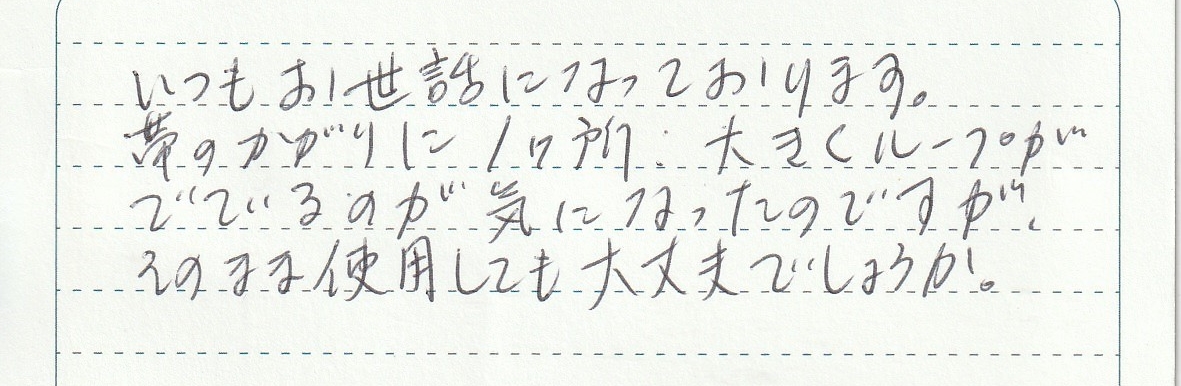 いつもお世話になっております。
帯のかがりに1ヶ所、大きくループが
でているのが気になったのですが、
そのまま使用しても大丈夫でしょうか。